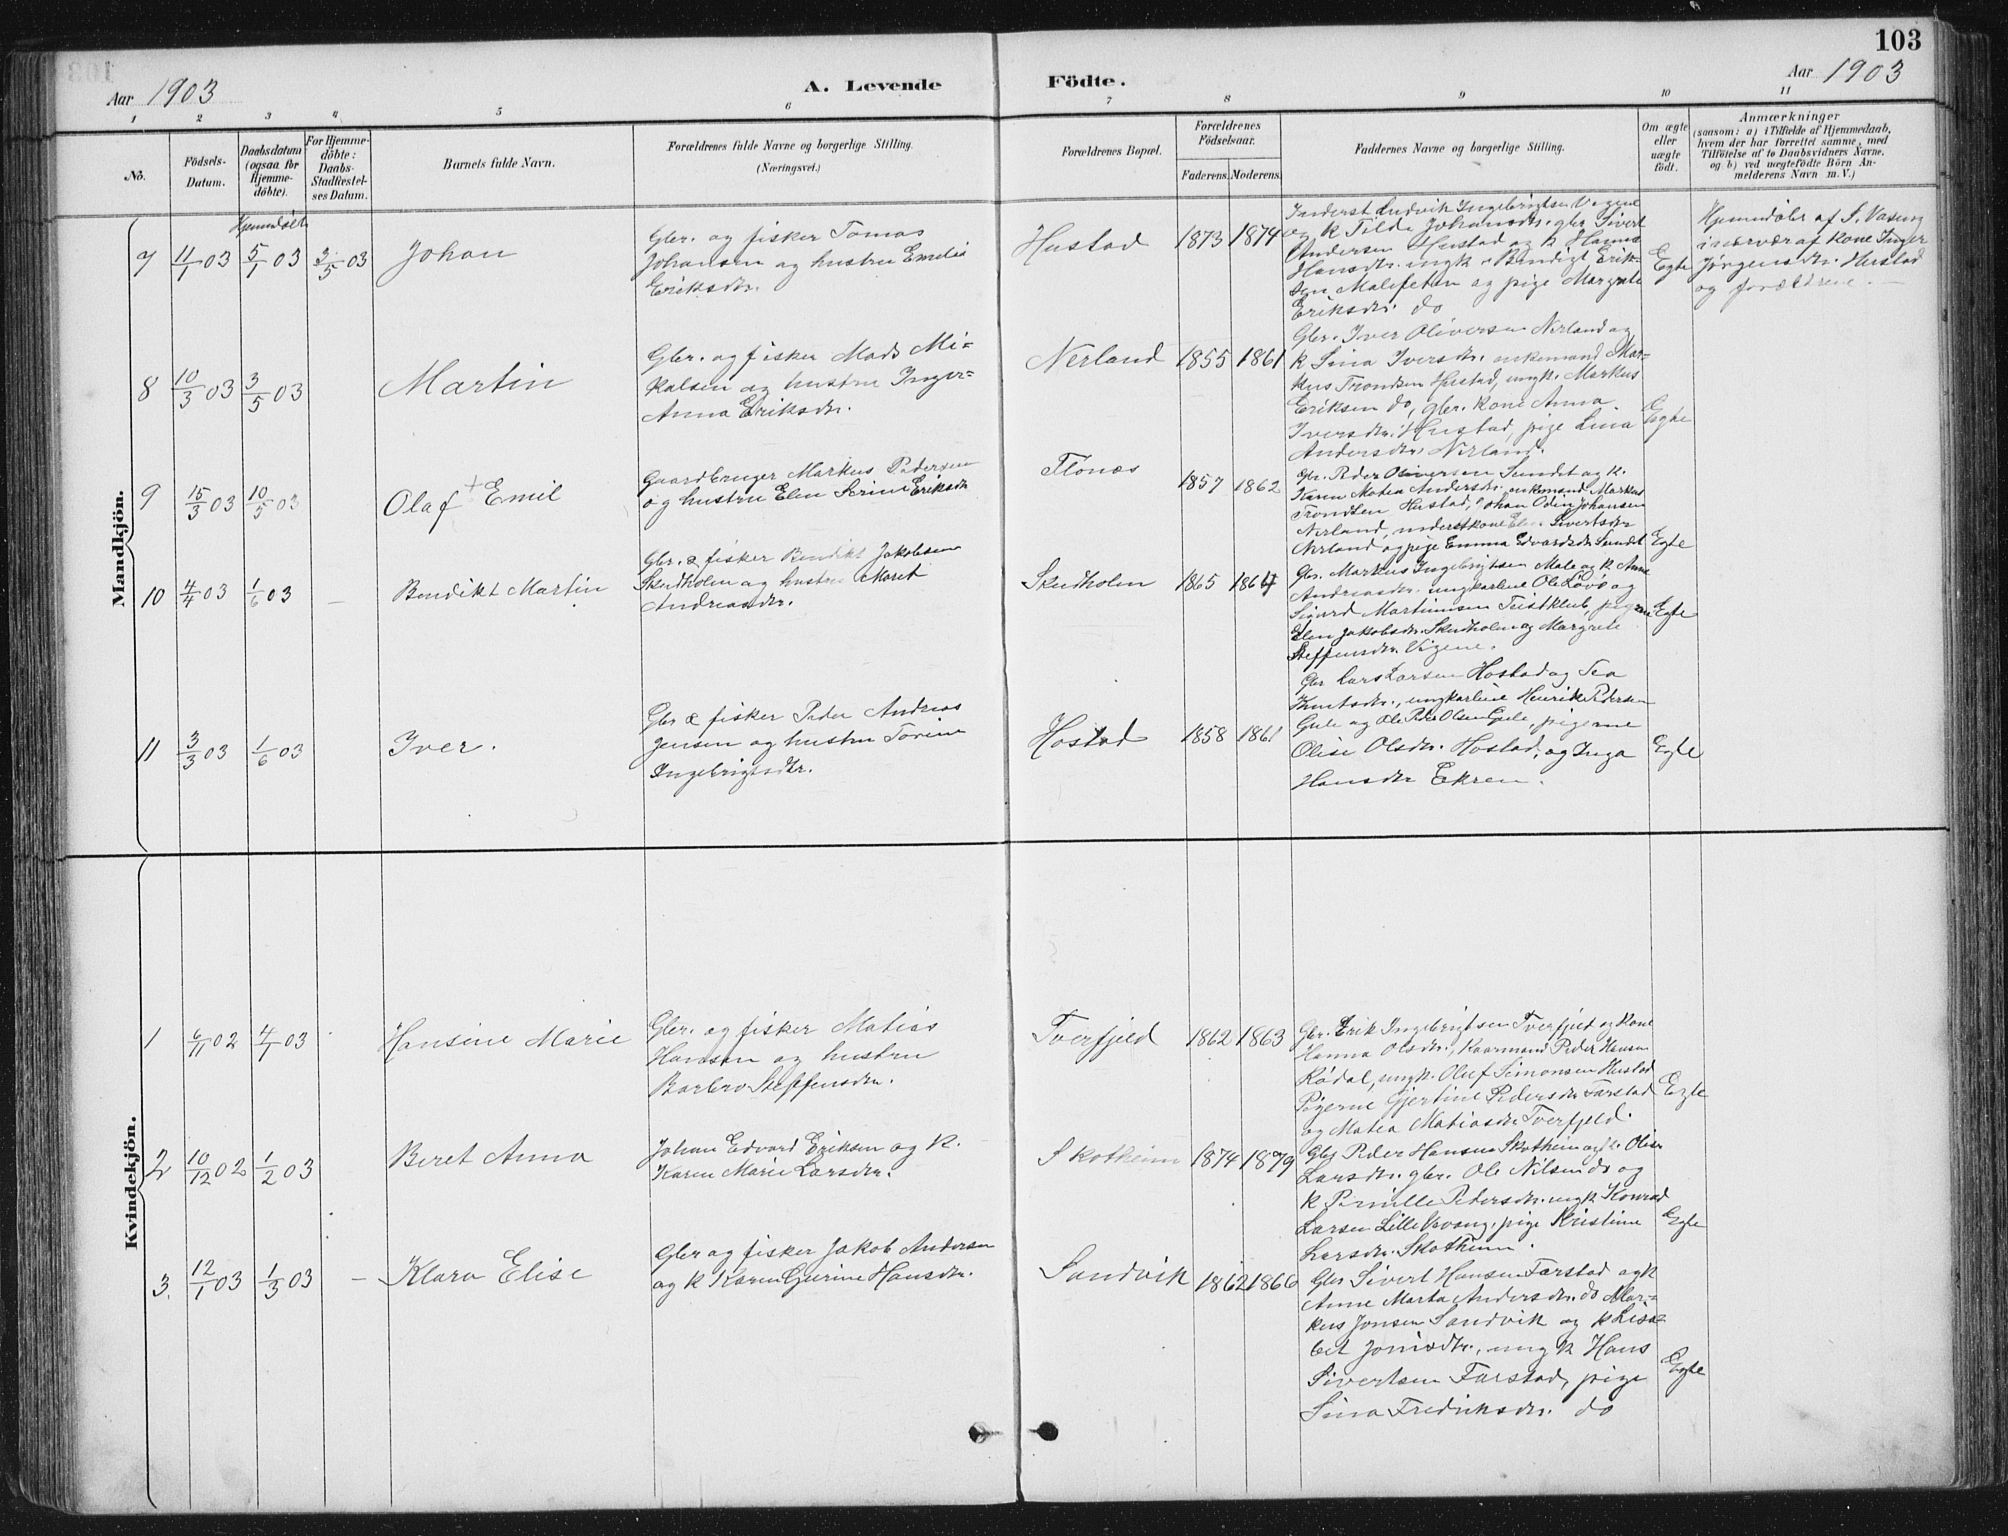 103
Aar 1903
A. Levende
Födte.
Aar 1903
1 2 3 4 5 6 7 8 9 10 11
No.
Födsels-
Datum.
Daabsdatum
(ogsaa for
Hjemme-
döbte).
For Hjemme-
döbte:
Daabs-
Stadfæstel-
ses Datum.
Barnets fulde Navn.
Forældrenes fulde Navne og borgerlige Stilling.
(Næringsvei.)
Forældrenes Bopæl.
Forældrenes
Födselsaar.
Faderens. Moderens.
Faddernes Navne og borgerlige Stilling.
Om ægte
eller
uægte
födt.
Anmærkninger
(saasom: a) i Tilfælde af Hjemmedaab,
hvem der har forrettet samme, med
Tilföielse af to Daabsvidners Navne.
og b) ved uægtefödte Börn An-
melderens Navn m. V.)
Mandkjön.
Hjemmedøbt
7 11/1 03 5/1 03 3/5 03
Johan
Gbr. og fisker Tomas
Johansen og hustru Emelia
Eriksdtr.
Hustad
1873 1874
Inderst Ludvik Ingebrigtsen Vigene
og k Tilda Johansdtr. gbr Sivert
Andersen Hustad og k Hanna
Hansdtr. ungk. Bendigt Erik-
sen Malefeten og pige Margrete
Eriksdtr. do
Egte
Hjemmedøbt af S.
isnærvær af kone Inger
Jørgensdtr. Hustad
og forældrene.
8 10/3 03 3/5 03
Martin
Gbr. og fisker Mads Mi-
kalsen og hustru Inger-
Anna Eriksdtr.
Nerland
1855 1861
Gbr. Iver Oliversen Nerland og
k Sina Iversdtr. enkemand Mar-
kus Trondsen Hustad, ungk. Markus
Eriksen do, gbr. kone Anna
Iversdtr. Hustad, pige Lina
Andersdtr. Nerland.
Egte
9 15/3 03 10/5 03
Olaf + Emil
Gaardbruger Markus Pedersen
og hustru Elen Serine Eriksdtr
Flonæs
1857 1862
Gbr. Peder Oliversen Sundet og k.
Karen Matea Andersdtr. enkemand Markus
Trondsen Hustad, Johan Odin Johansen
Nerland, inderstkone Sivertsdtr
Nerland og pige Emma Edvardsdtr Sundet
Egte
10 4/4 03 1/6 03 —
Bendikt Martin
Gbr. & fisker Bendikt Jakobsen
Skudholm og hustru Maret
Andreasdtr.
Skudholm
1865 1864
Gbr. Markus Ingebrigtsen Male og k Anne
Andreasdtr. ungkarlene Ole Løvø og
Sivard Martinusen Teistklub, pigerne
Elen Jakobsdtr. Skudholm og Margrete
Steffensdtr. Vigene.
Egte
11 3/3 03 1/6 03
Iver.
Gbr & fisker Peder Andreas
Jensen og hustru Torine
Ingebrigtsdtr.
Hostad
1858 1861
Gbr Lars Larsen Hostad og Sea
Knutsdtr., ungkarlene Henrik Pedersen
Gule og Ole Peder Olsen Gule, pigerne
Olise Olsdtr. Hostad, og Inga
Hansdtr Ekren.
Egte
Kvindekjön.
1 6/11 02 4/1 03
Hansine Marie
Gbr. og fisker Matias
Hansen og hustru
Barbro Steffensdtr.
Tverfjeld
1862 1863
Gbr. Erik Ingebrigtsen Tverfjeld og kone
Hanna Olsdtr., Kaarmand Peder Hansen
Rødal, ungk. Oluf Simonsen Hustad
Pigerne Gjertine Pedersdtr Farstad
og Matea Matiasdtr Tverfjeld.
Egte
2 10/12 02 1/2 03
Beret Anna
Johan Edvard Eriksen og k.
Karen Marie Larsdtr.
Skotheim
1874 1879
Gbr Peder Hansen Skotheim og k. Olise
Larsdtr. gbr. Ole Nilsen do og
k Pernille Pedersdtr. ungk Konrad
Larsen Lille , pige Kristine
Larsdtr. Skotheim.
Egte
3. 12/1 03 1/3 03 —
Klara Elise
Gbr og fisker Jakob Andersen
og k Karen Gurine Hansdtr.
Sandvik
1862 1866
Gbr Sivert Hansen Farstad og k
Anne Marta Andersdtr. do Mar-
kus Jonsen Sandvik og k Lisa-
bet Jonsdtr., ungk Hans
Sivertsen Farstad, pige
Sina Fredriksdtr. do
Egte